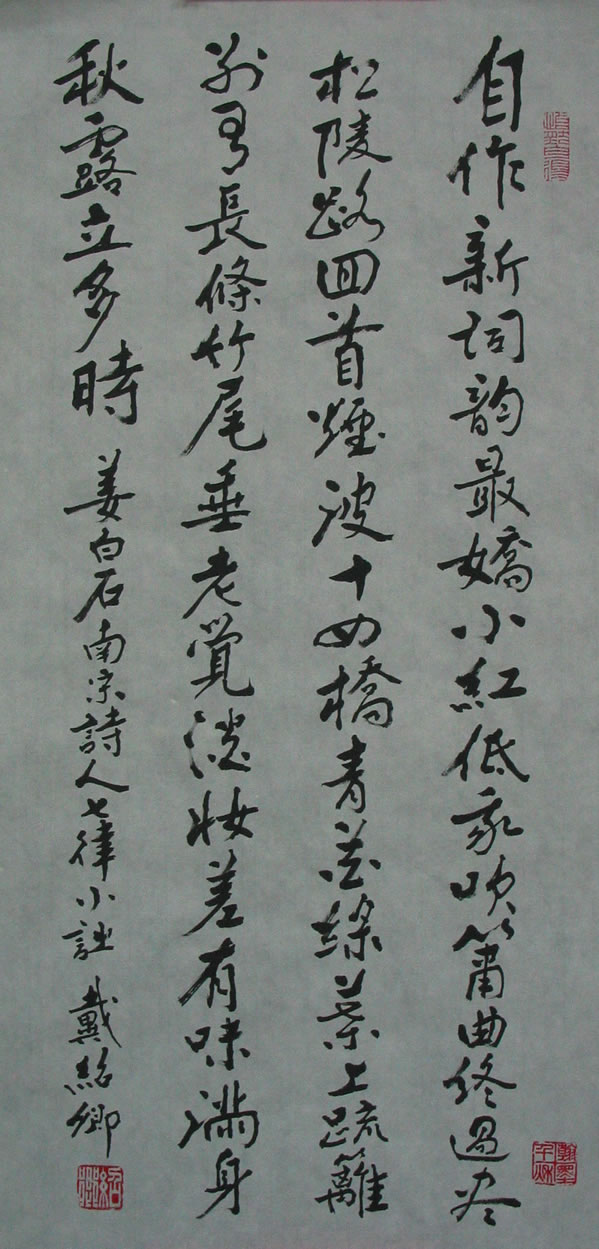 自作新詞韵最嬌小紅低我吹簫曲終過尽
松陵路囬首煙波十四橋青花綠葉上疏籬
別有長條竹尾垂老覺淡妝差有味滿身
秋露立多時 姜白石南宋詩人七律小 戴紹卿